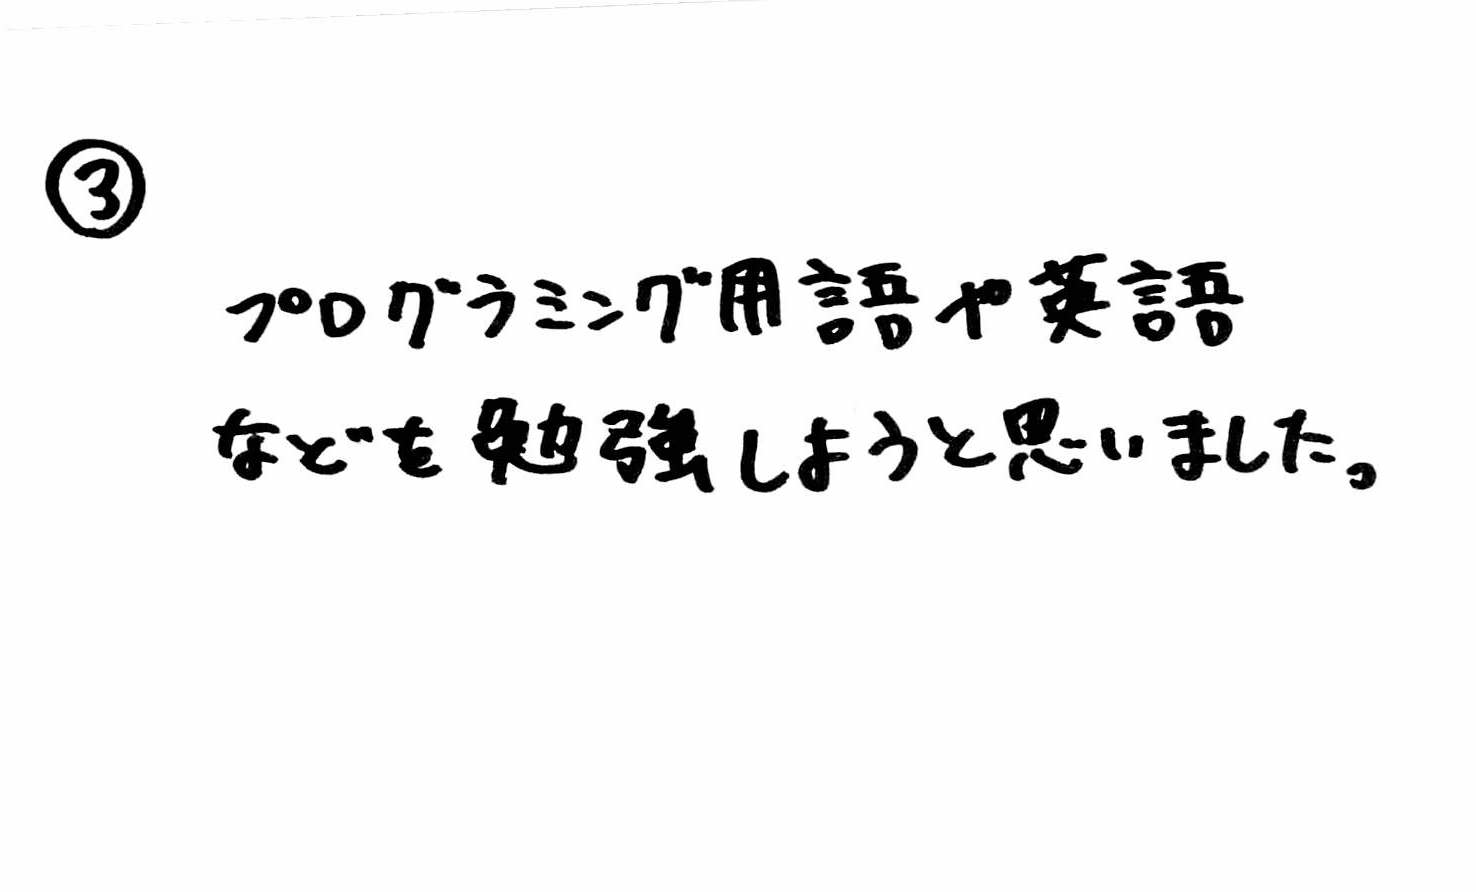 ③
プログラミング用語や英語
などを勉強しようと思いました。